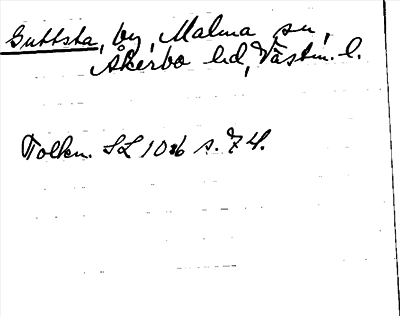 Guttsta, by, Malma sn,
Åkerbo hd, Västm. l.
Tolkn. SL 10:6 s. 74.